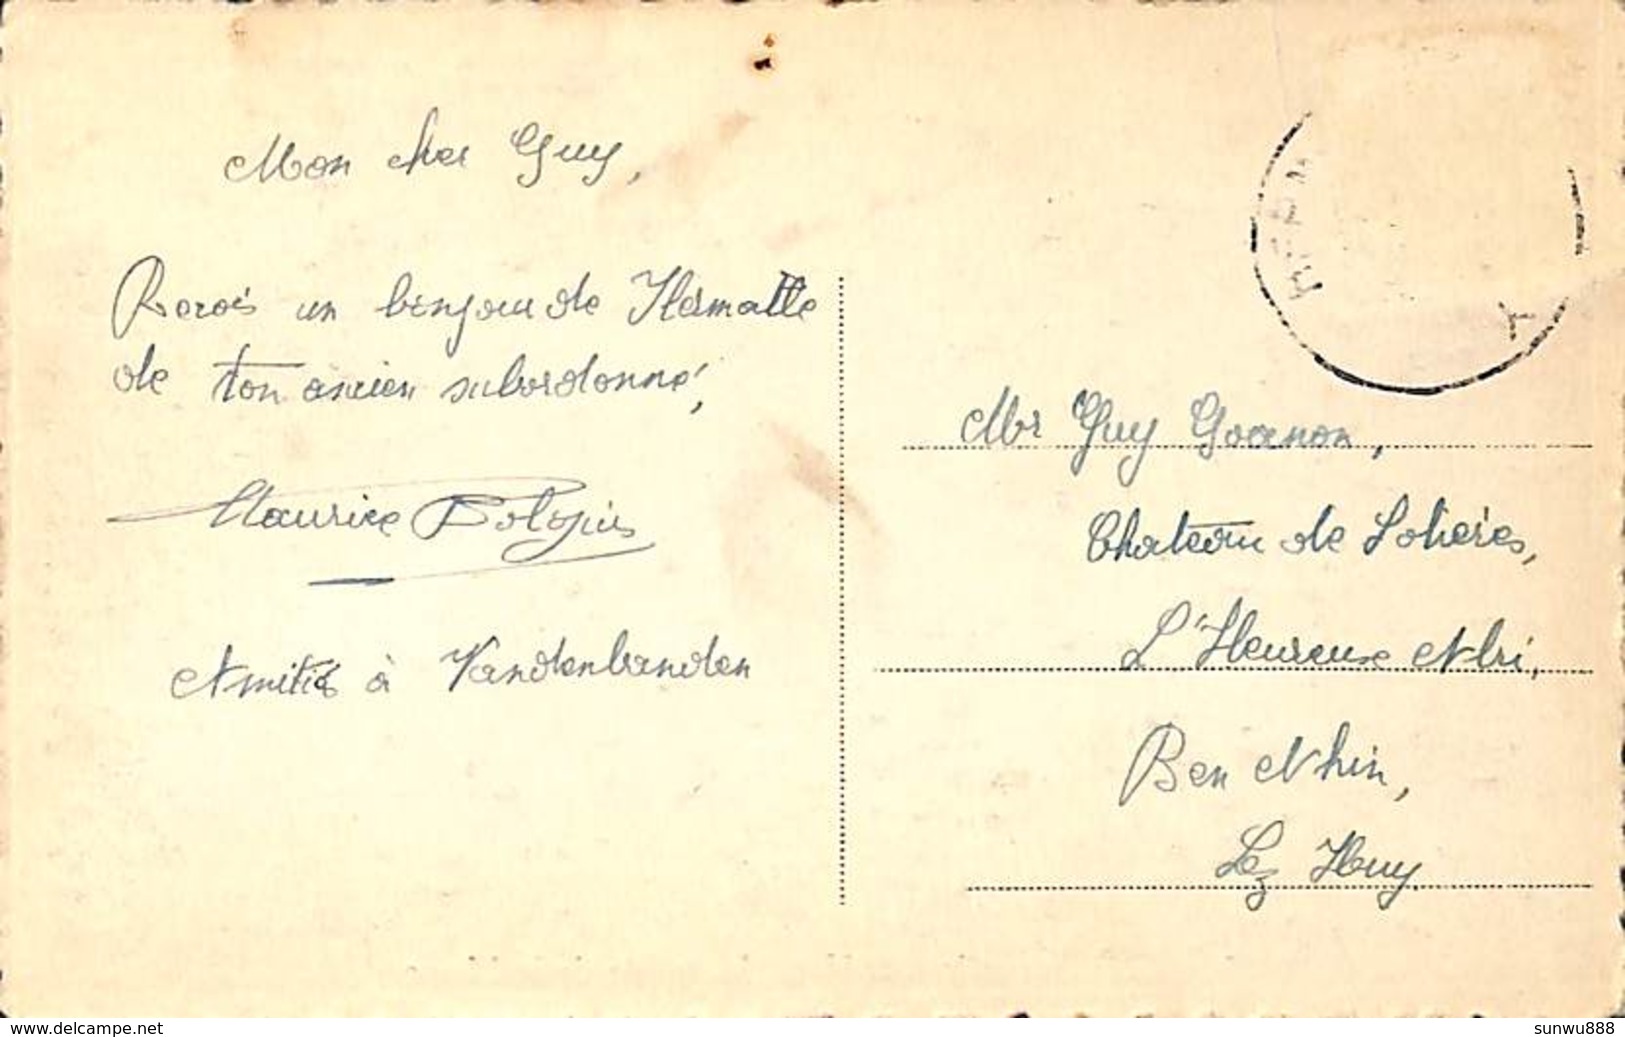 Mon cher Guy,
Recois un bonjour de Hermalle
de ton ancien subordonné,
Maurice
Amitiés à Vandenbranden
Mr Guy
Chateau de Solières,
L'Heureux Abri,
Ben Ahin,
Lez Huy
HERM
www.delcampe.net
sunwu888